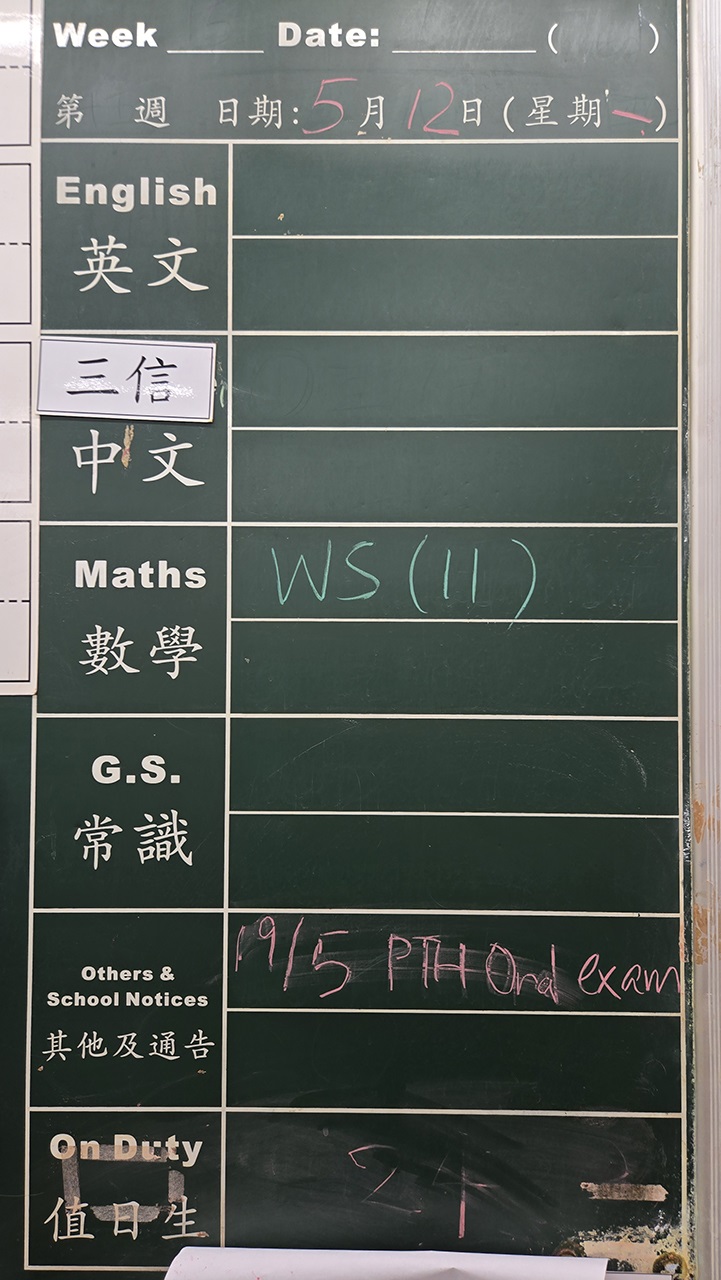 Week ______ Date: _________ (      )
第 週 日期: 5月12日(星期一)
English
英文
三信
中文
Maths
WS (11)
數學
G.S.
常識
19/5 PTH Oral exam
Others &
School Notices
其他及通告
On Duty
24
值日生